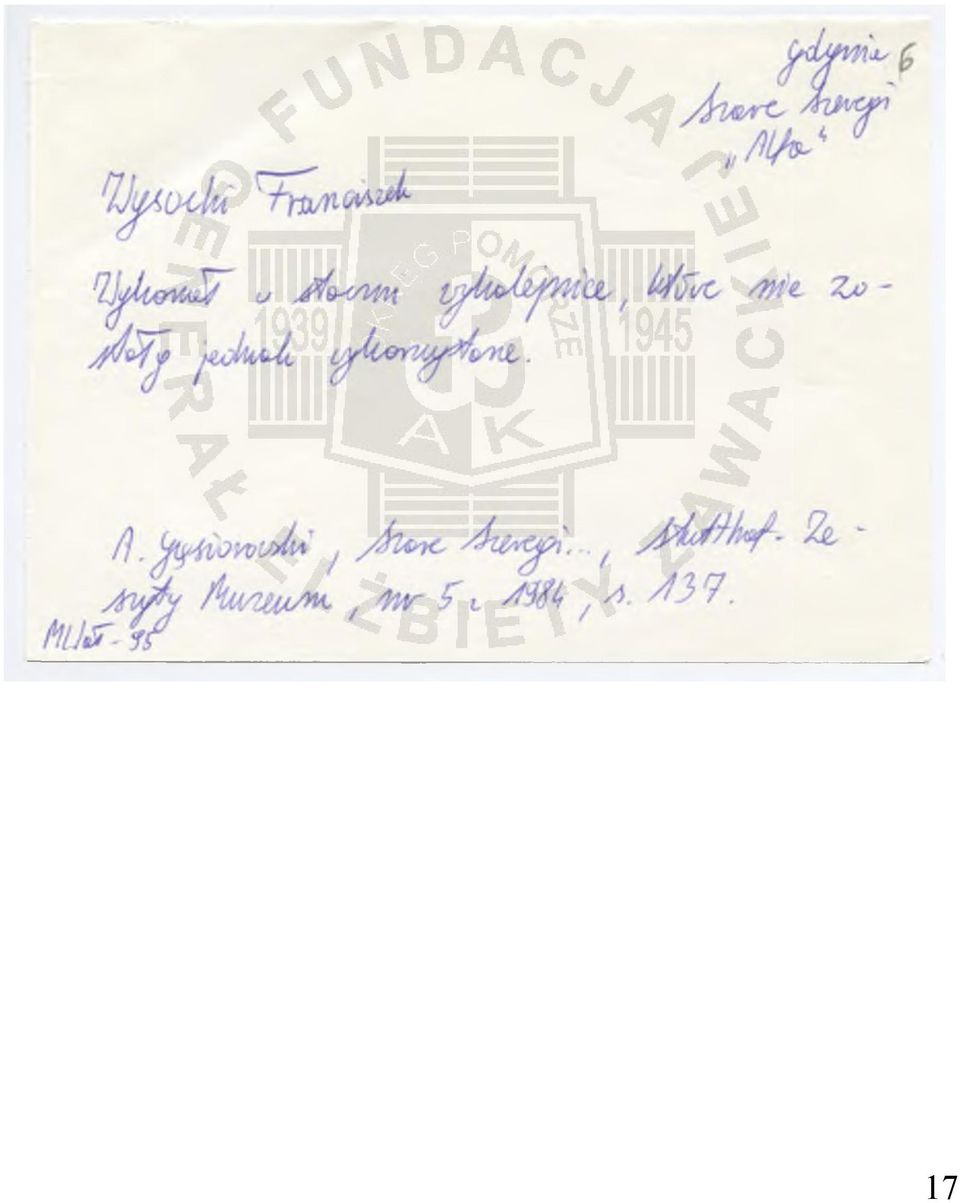 Gdynia 6
Szare Szeregi
„Alfa"
Wysocki Franciszek
Wykonał w stoczni wykolejnice, które nie zo-
stały jednak wykorzystane.
A. Gąsiorowski, Szare Szeregi..., Stutthof. Ze-
szyty Muzeum, nr 5 z 1984, s. 137.
- 95
FUNDACJA GENERAŁ ELŻBIETY ZAWACKIEJ
OKRĘG POMORZE
1939 1945
AK
17